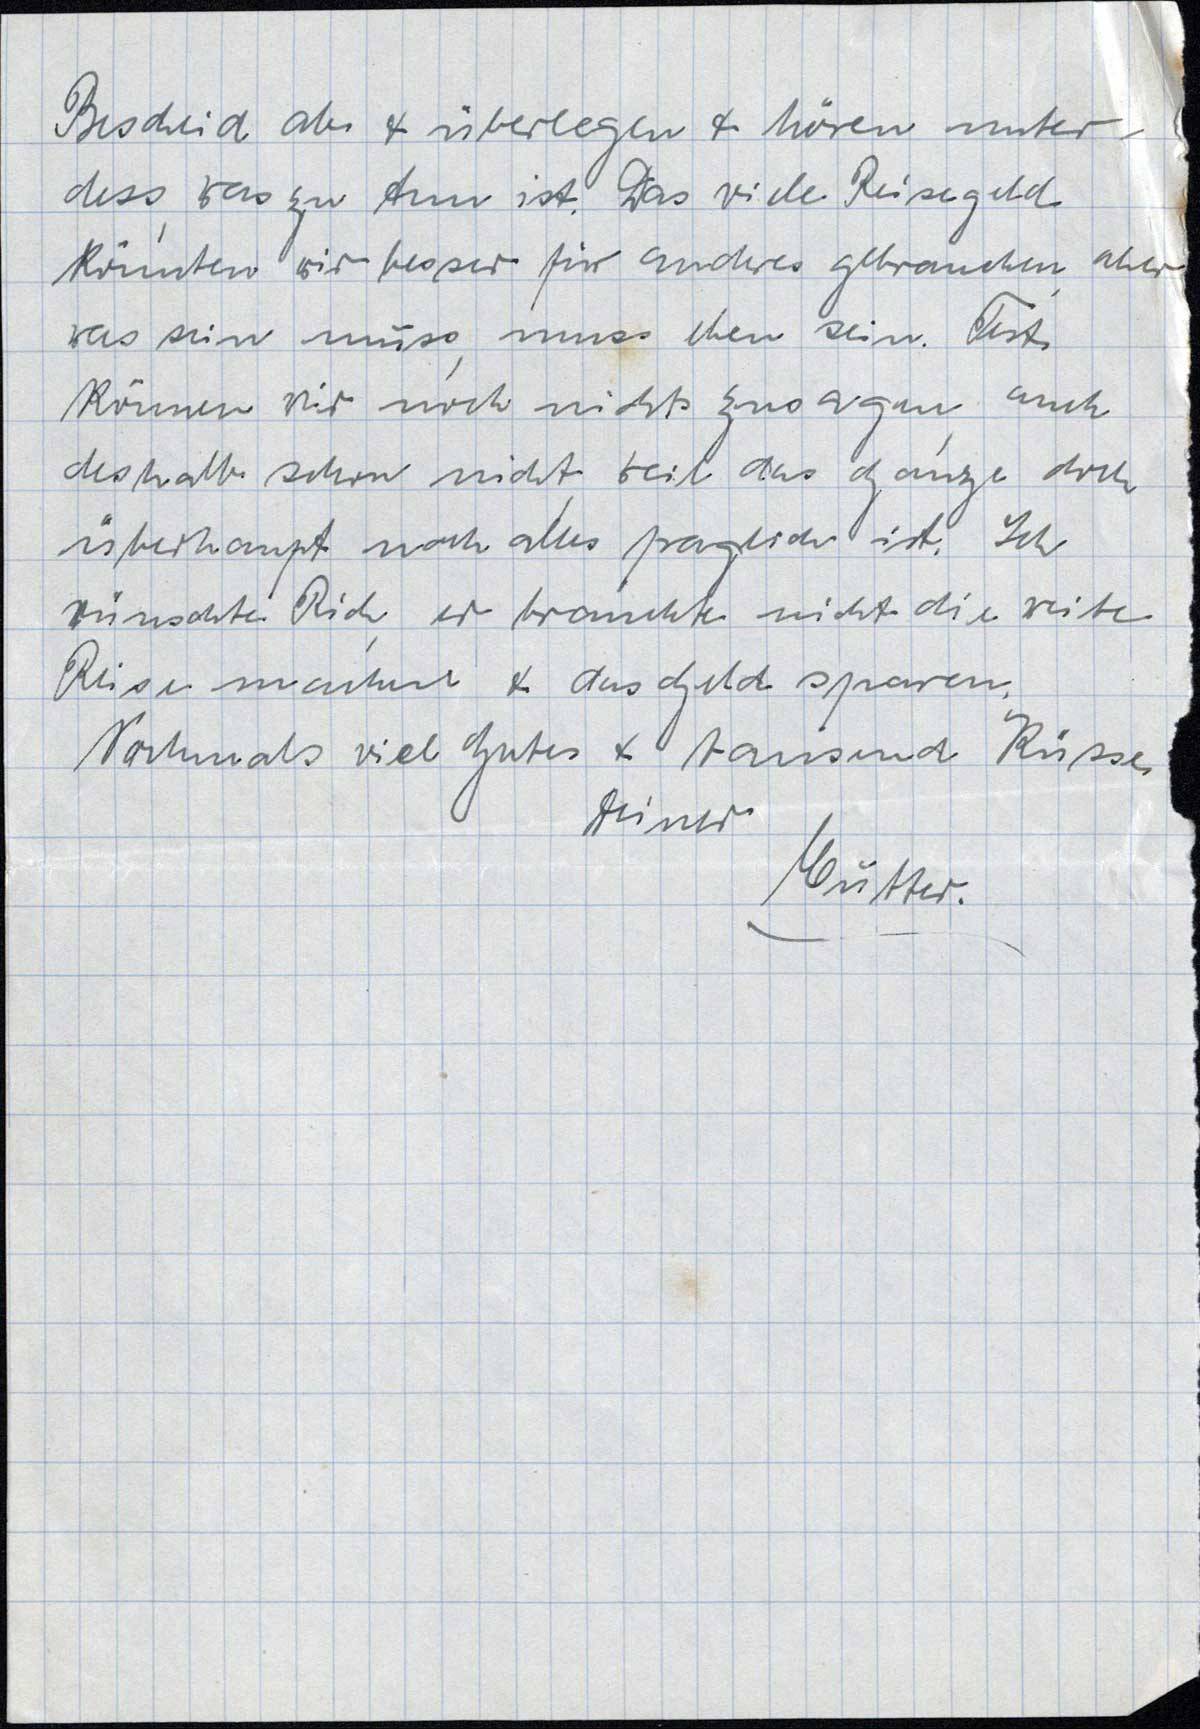 Bescheid ab & überlegen & hören unter-
dess, was zu tun ist. Das viele Reisegeld
könnten wir besser für anderes gebrauchen, aber
was sein muss, muss eben sein. Fest
können wir noch nichts zusagen, auch
deshalb schon nicht, weil das ganze doch
überhaupt noch alles fraglich ist. Ich
wünschte Rich, er brauchte nicht die weite
Reise machen & das Geld sparen.
Nochmals viel Gutes & tausend Küsse
Deiner
Mutter.